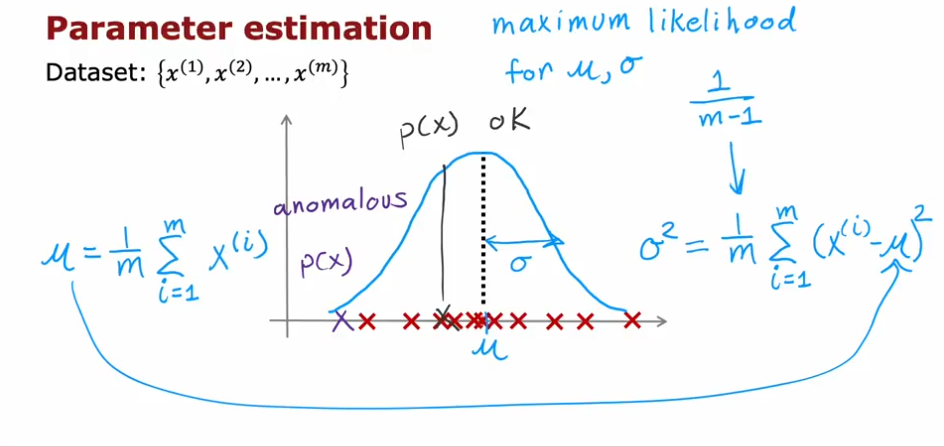 Parameter estimation
Dataset: {x⁽¹⁾, x⁽²⁾, …, x⁽ᵐ⁾}
maximum likelihood
for μ, σ
1/(m-1)
p(x) ok
anomalous
p(x)
μ = 1/m ∑_{i=1}^{m} x^{(i)}
σ
σ² = 1/m ∑_{i=1}^{m} (x^{(i)} - μ)²
μ